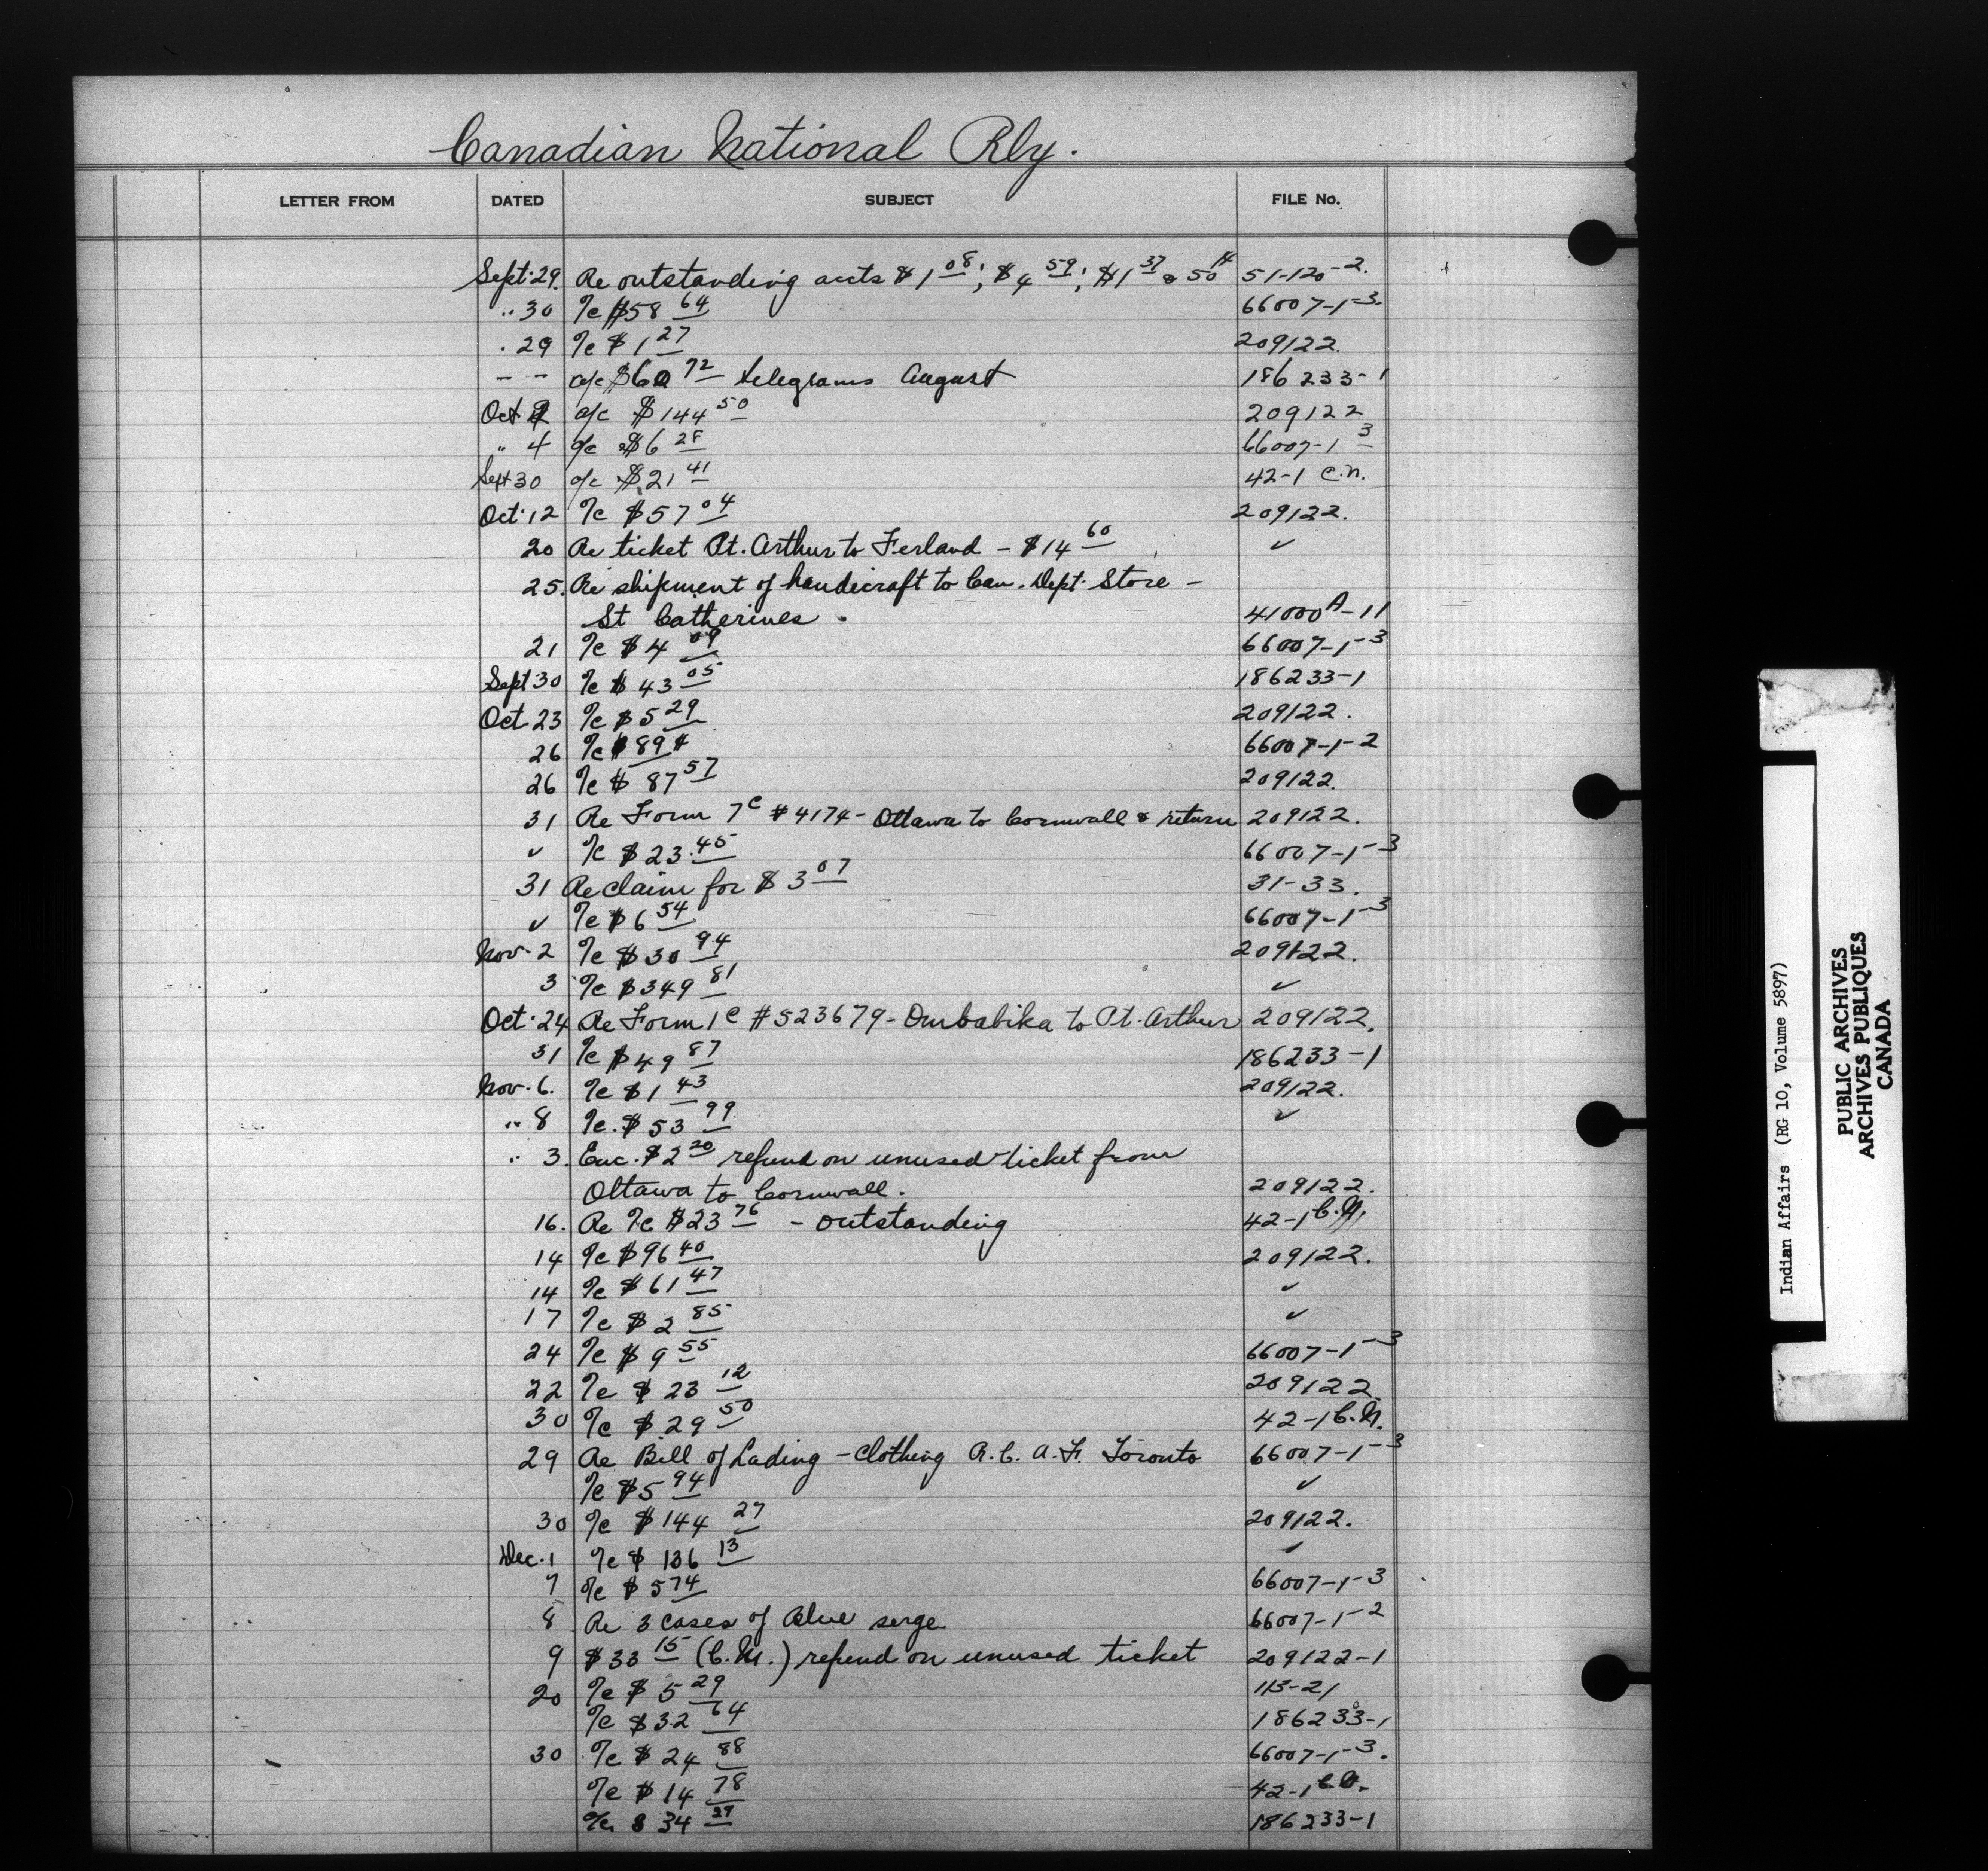 Canadian National Rly.
LETTER FROM DATED SUBJECT FILE No.
Sept. 29. Re outstanding accts $1 08; $4 59; $1 37 & 50 14 51-120-2.
" 30 a/c $58 64 66007-1-3.
" 29 a/c $1 27 209122.
- - a/c $60 72 telegrams August 186233-1
Oct a/c $144 50 209122
" 4 a/c $6 28 66007-1-3
Sept 30 a/c $21 41 42-1 C.N.
Oct. 12 a/c $57 04 209122.
20 Re ticket Pt. Arthur to Ferland - $14 60 ✓
25. Re shipment of handicraft to Can. Dept. Store -
St Catherines. 41000A-11
21 a/c $4 09 66007-1-3
Sept 30 a/c $43 05 186233-1
Oct. 23 a/c $5 29 209122.
26 a/c 89¢ 66007-1-2
26 a/c $87 57 209122.
31 Re Form 7c #4174 - Ottawa to Cornwall & return 209122.
✓ a/c $23.45 66007-1-3
31 Re claim for $3 07 31-33.
✓ a/c $6 54 66007-1-3
Nov. 2 a/c $30 94 209122.
3 a/c $349 81 ✓
Oct. 24 Re Form 1c #523679 - Ombabika to Pt. Arthur 209122.
31 a/c $49 87 186233-1
Nov. 6. a/c $1 43 209122.
" 8 a/c $53 99 ✓
" 3. Enc. $2 20 refund on unused ticket from
Ottawa to Cornwall. 209122.
16. Re a/c $23 76 - outstanding 42-1 C.N.
14 a/c $96 40 209122.
14 a/c $61 47 ✓
17 a/c $2 85 ✓
24 a/c $9 55 66007-1-3
22 a/c $23 12 209122.
30 a/c $29 50 42-1 C.N.
29 Re Bill of Lading - Clothing R.C.A.F. Toronto 66007-1-3
a/c $5 94 ✓
30 a/c $144 27 209122.
Dec. 1 a/c $136 13 ✓
7 a/c $5 74 66007-1-3
8 Re 3 cases of Blue serge 66007-1-2
9 $33 15 (C.N.) refund on unused ticket 209122-1
20 a/c $5 29 113-21
a/c $32 64 186233-1
30 a/c $24 88 66007-1-3.
a/c $14 78 42-1 C.N.
a/c $34 27 186233-1
Indian Affairs (RG 10, Volume 5897)
PUBLIC ARCHIVES
ARCHIVES PUBLIQUES
CANADA